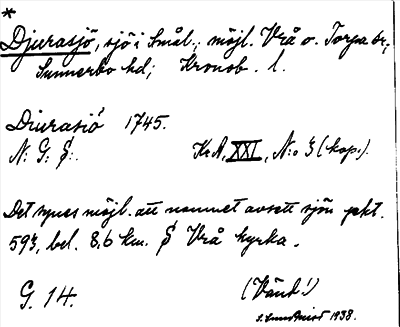 *
Djurasjö, sjö i Smål.; möjl. Vrå o. Torpa sr,
Sunnerbo hd; Kronob. l.
Diurasiö 1745.
N: G: S:. KrA, XXI, N:o 3 (kop.).
Det synes möjl. att namnet avsett sjön pkt.
593, bel. 8,6 km. S Vrå kyrka.
G. 14. (Vänd!)
1938.